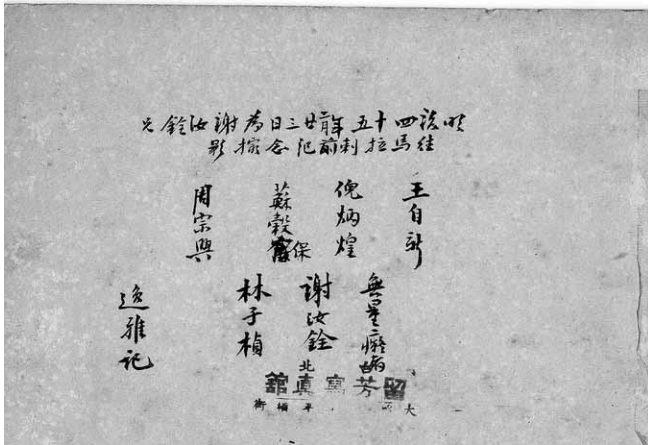 明治四十五年二月廿三日為謝汝銓兄
往馬拉剌前紀念撮影
王自新
倪炳煌
蘇穀保
周宗興
謝汝銓
林子楨
逸雅記
北
留芳寫真館
大 街